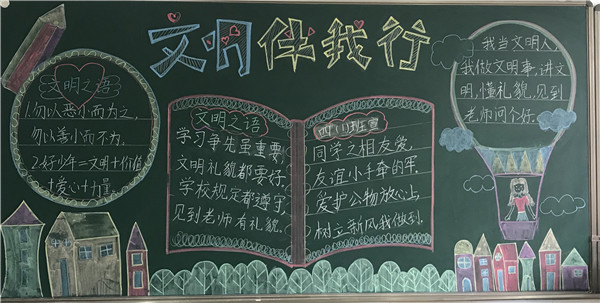 文明伴我行
文明之语
1.勿以恶小而为之,
勿以善小而不为。
2.好少年=文明+价值
+爱心+力量。
文明之语
学习争先虽重要,
文明礼貌都要好,
学校规定都遵守,
见到老师有礼貌。
四(1)班宣
同学之相友爱,
友谊小手牵的牢,
爱护公物放心上,
树立新风我做到.
我当文明人,
我做文明事,讲文
明,懂礼貌,见到
老师问个好.